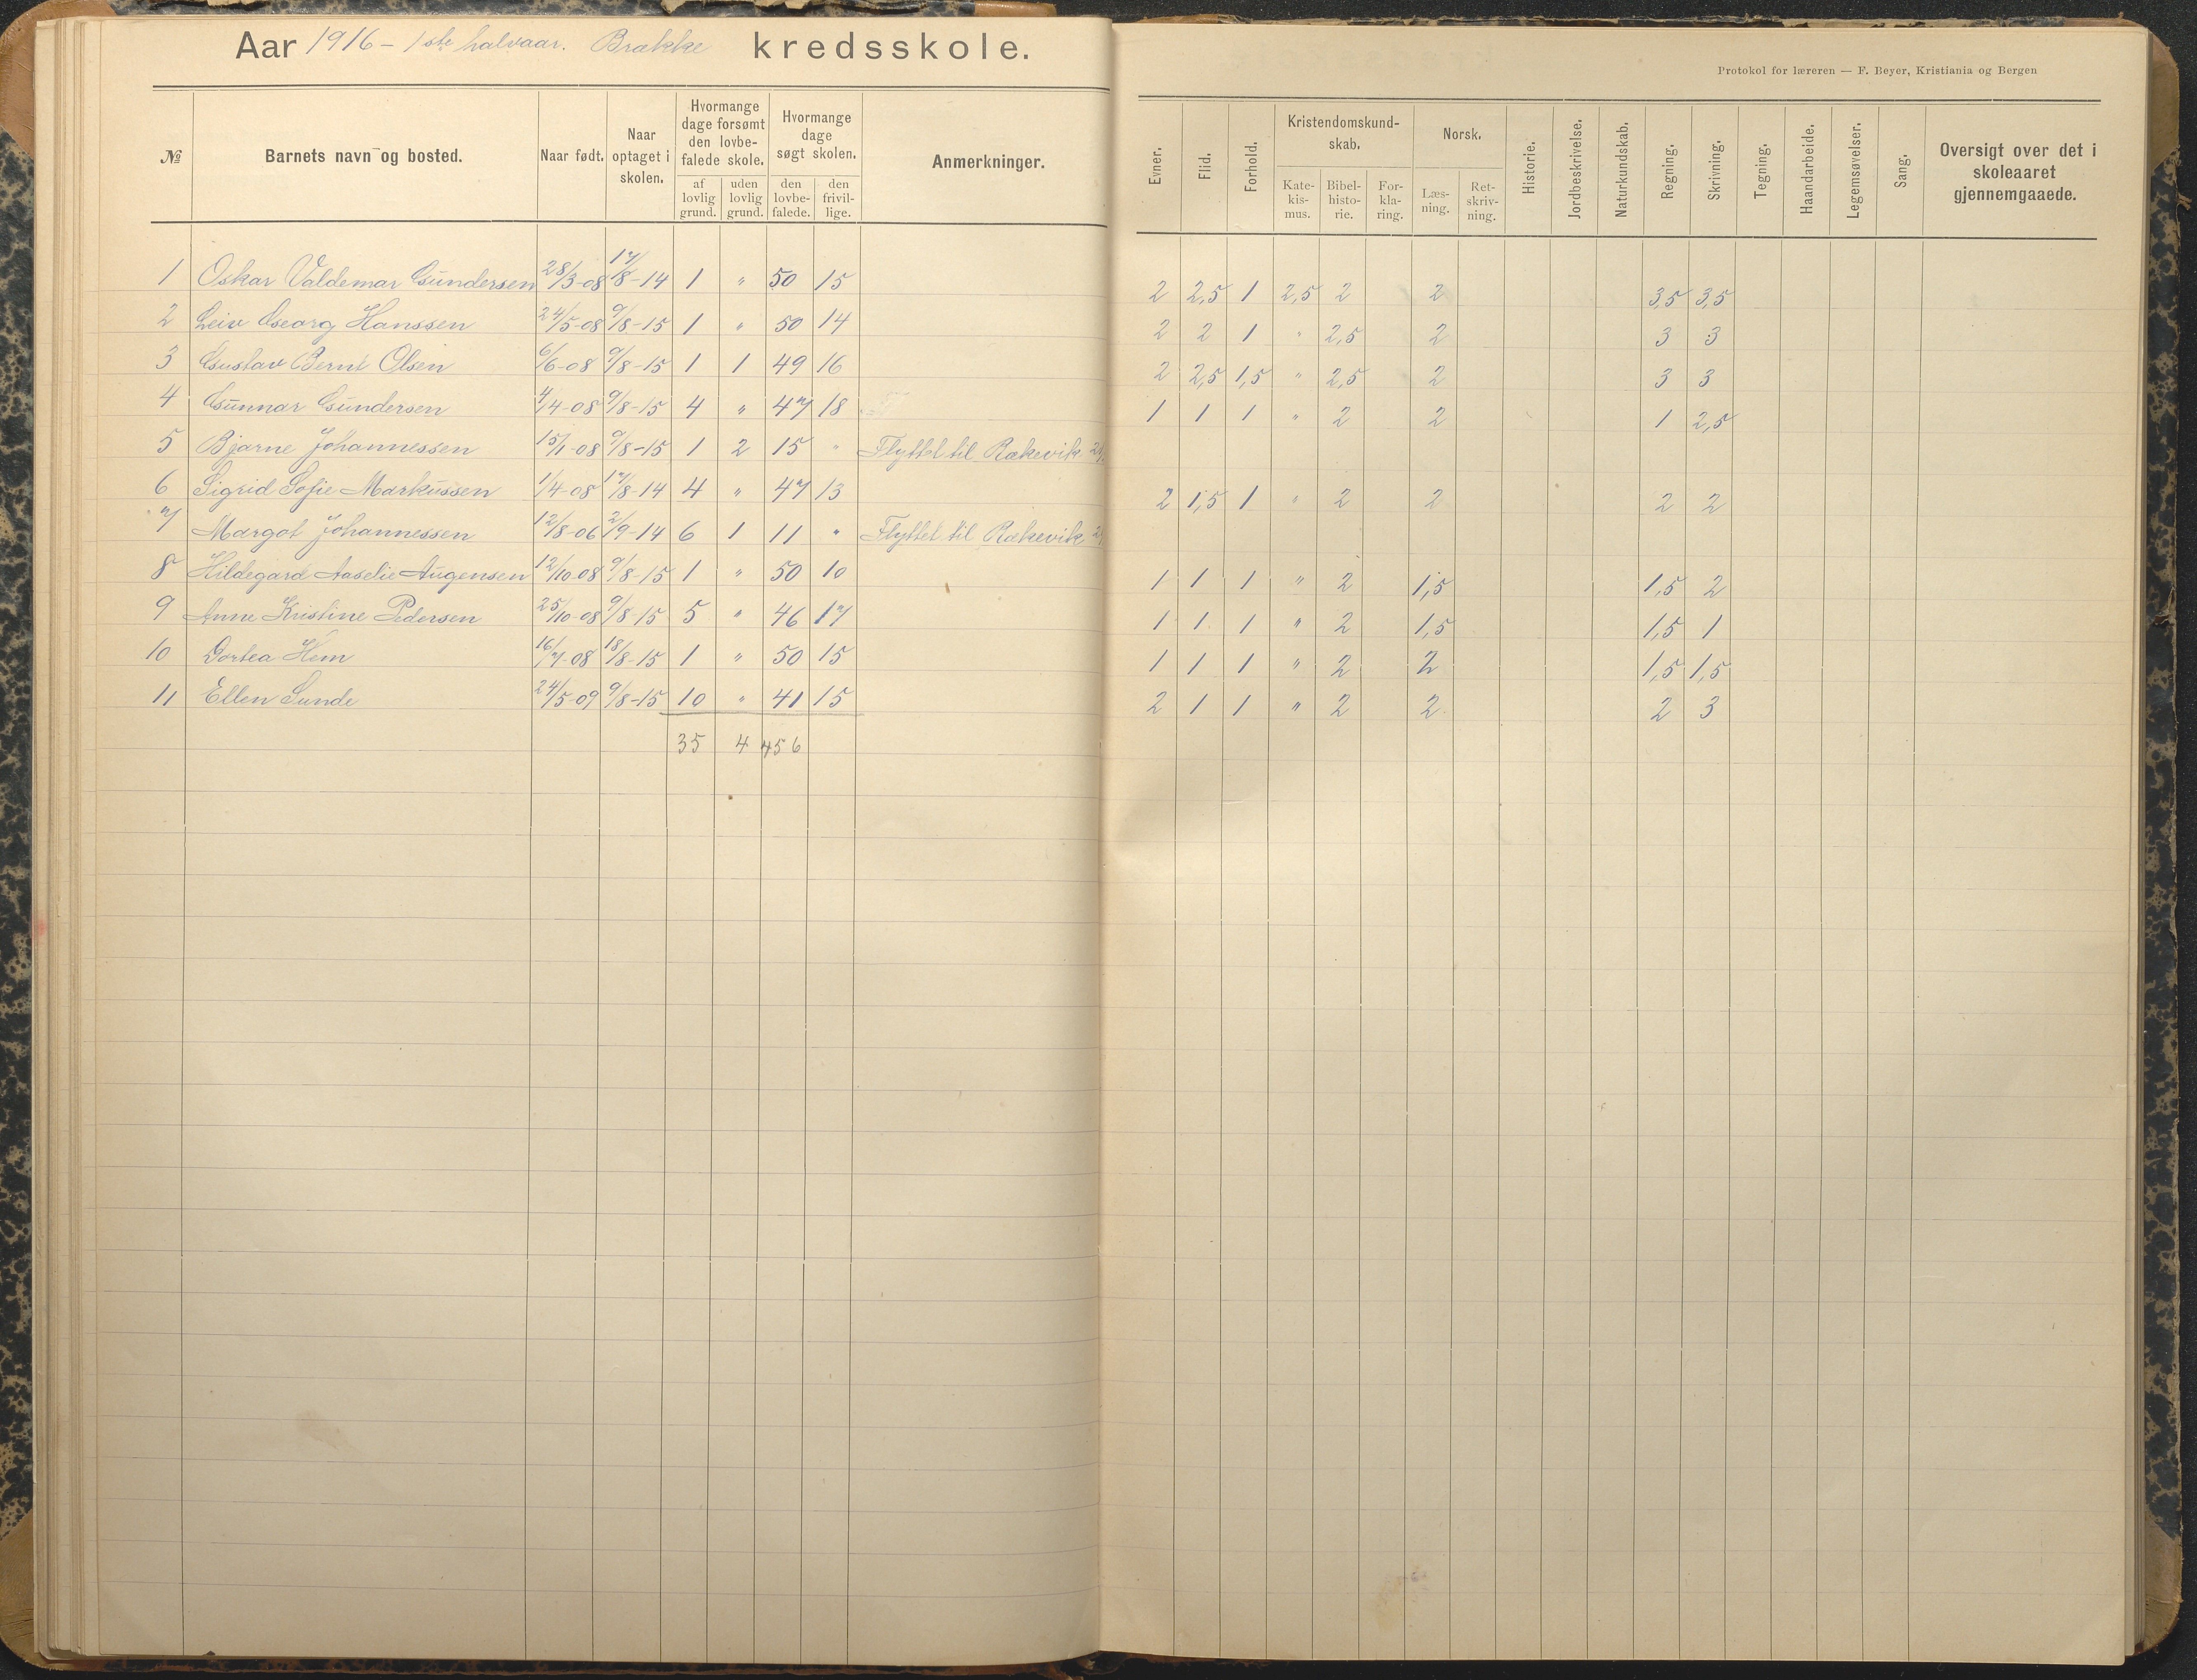 Aar 1916 - 1ste halvaar. Brække kredsskole.
Protokol for læreren — F. Beyer, Kristiania og Bergen
№ Barnets navn og bosted. Naar født. Naar optaget i skolen. Hvormange dage forsømt den lovbefalede skole. af lovlig grund. uden lovlig grund. Hvormange dage søgt skolen. den lovbefalede. den frivillige. Anmerkninger. Evner. Flid. Forhold. Kristendomskundskab. Katekismus. Bibelhistorie. Forklaring. Norsk. Læsning. Retskrivning. Historie. Jordbeskrivelse. Naturkundskab. Regning. Skrivning. Tegning. Haandarbeide. Legemsøvelser. Sang. Oversigt over det i skoleaaret gjennemgaaede.
1 Oskar Valdemar Gundersen 28/3-08 17/8-14 1 " 50 15 2 2,5 1 2,5 2 2 3,5 3,5
2 Leiv Georg Hanssen 24/5-08 9/8-15 1 " 50 14 2 2 1 " 2,5 2 3 3
3 Gustav Bernt Olsen 6/6-08 9/8-15 1 1 49 16 2 2,5 1,5 " 2,5 2 3 3
4 Gunnar Gundersen 4/4-08 9/8-15 4 " 47 18 1 1 1 " 2 2 1 2,5
5 Bjarne Johannessen 15/1-08 9/8-15 1 2 15 " Flyttet til Rækevik
6 Sigrid Sofie Markussen 1/4-08 17/8-14 4 " 47 13 2 1,5 1 " 2 2 2 2
7 Margot Johannessen 12/8-06 2/9-14 6 1 11 " Flyttet til Rækevik
8 Hildegard Aaselie Augensen 12/10-08 9/8-15 1 " 50 10 1 1 1 " 2 1,5 1,5 2
9 Anne Kristine Pedersen 25/10-08 9/8-15 5 " 46 17 1 1 1 " 2 1,5 1,5 1
10 Dortea Hem 16/7-08 18/8-15 1 " 50 15 1 1 1 " 2 2 1,5 1,5
11 Ellen Sunde 24/5-09 9/8-15 10 " 41 15 2 1 1 " 2 2 2 3
35 4 456